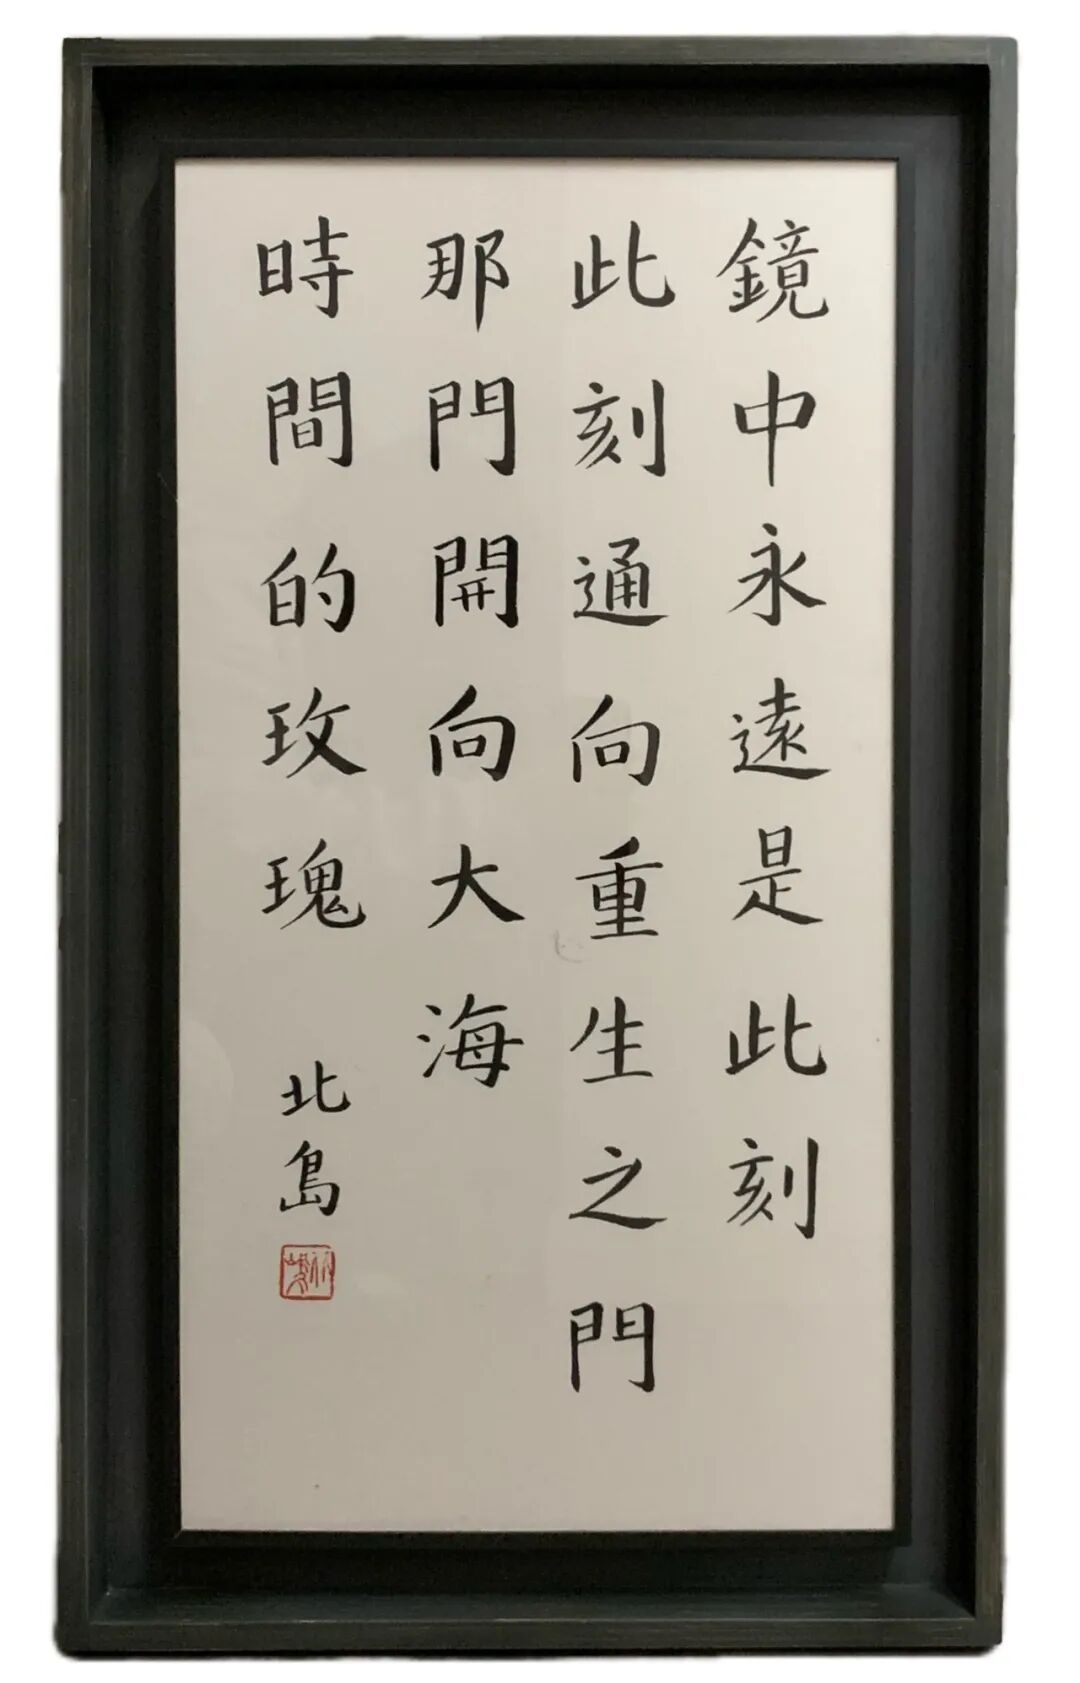 鏡中永遠是此刻
此刻通向重生之門
那門開向大海
時間的玫瑰
北島